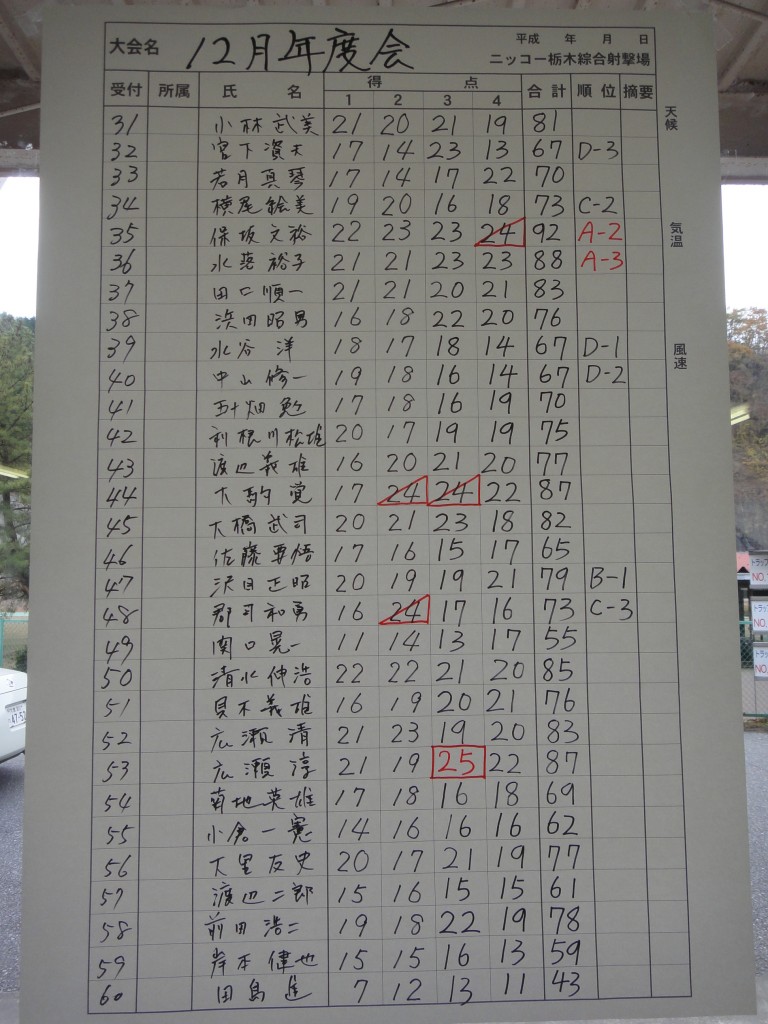 大会名 12月年度会 平成 年 月 日
ニッコー栃木綜合射撃場
受付 所属 氏 名 得 点 合計 順位 摘要
1 2 3 4
天候
気温
風速
31 小林武美 21 20 21 19 81
32 宮下資夫 17 14 23 13 67 D-3
33 若月真琴 17 14 17 22 70
34 横尾絵美 19 20 16 18 73 C-2
35 保坂文裕 22 23 23 24 92 A-2
36 水落裕子 21 21 23 23 88 A-3
37 田口順一 21 21 20 21 83
38 浜田昭男 16 18 22 20 76
39 水谷 洋 18 17 18 14 67 D-1
40 中山修一 19 18 16 14 67 D-2
41 五十畑勉 17 18 16 19 70
42 利根川松雄 20 17 19 19 75
43 渡辺義雄 16 20 21 20 77
44 大駒 覚 17 24 24 22 87
45 大橋武司 20 21 23 18 82
46 佐藤要悟 17 16 15 17 65
47 沢目正昭 20 19 19 21 79 B-1
48 郡司和勇 16 24 17 16 73 C-3
49 関口晃一 11 14 13 17 55
50 清水伸浩 22 22 21 20 85
51 貝木義雄 16 19 20 21 76
52 広瀬 清 21 23 19 20 83
53 広瀬 淳 21 19 25 22 87
54 菊地英雄 17 18 16 18 69
55 小倉一憲 14 16 16 16 62
56 大里友史 20 17 21 19 77
57 渡辺二郎 15 16 15 15 61
58 前田浩二 19 18 22 19 78
59 岸本健也 15 15 16 13 59
60 田島進 7 12 13 11 43
トラップ
NO.
トラップ
NO.
トラップ
NO.